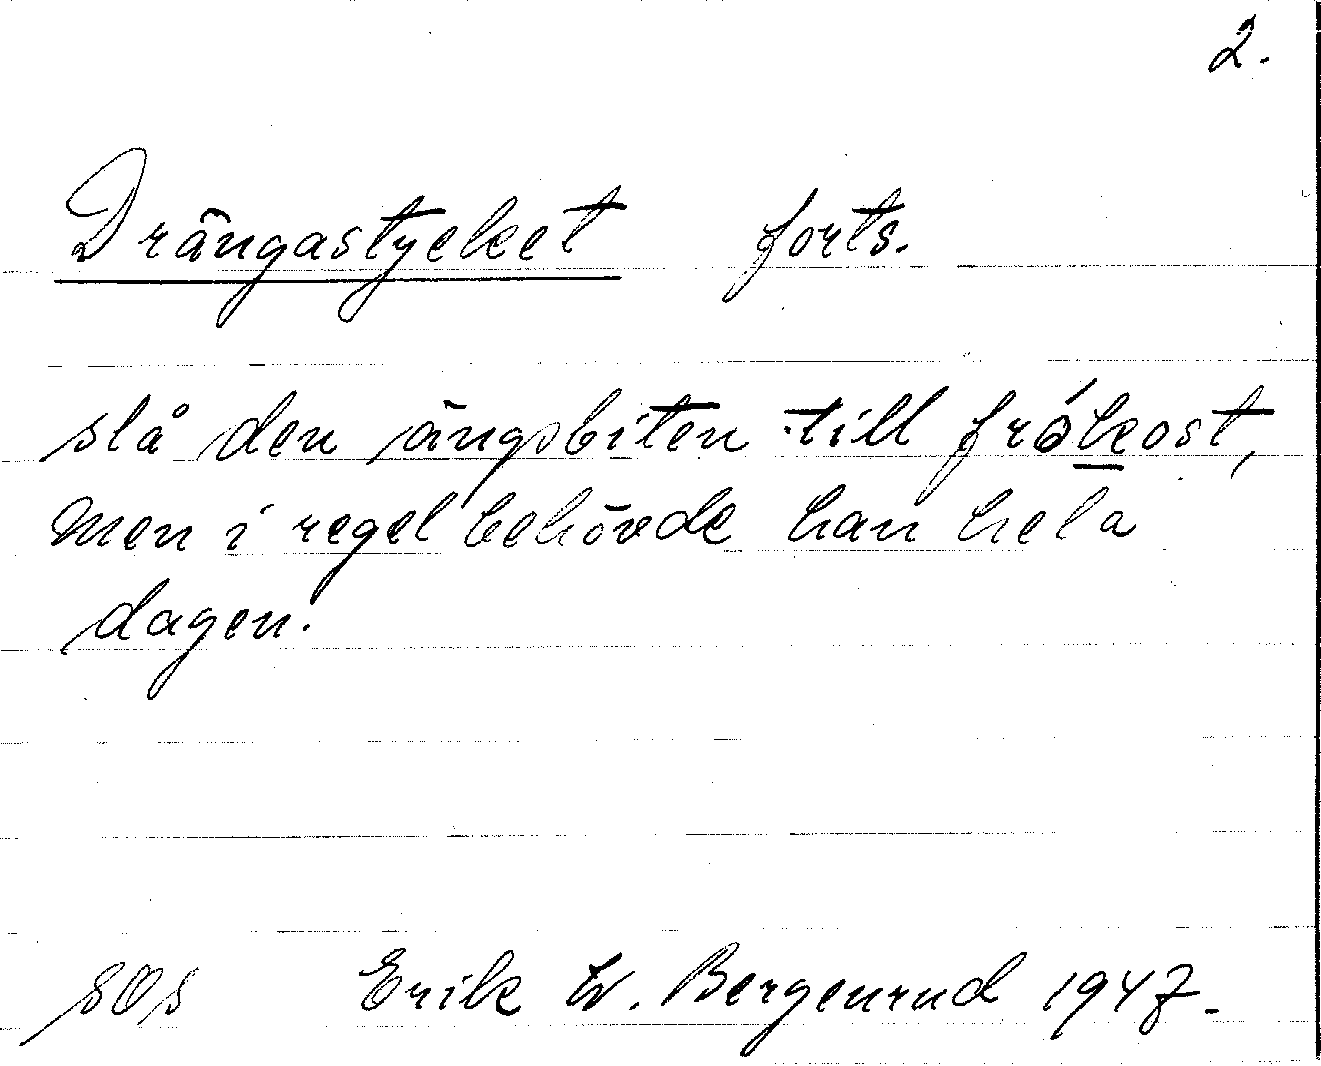 2.
Drängastycket forts.
slå den ängsbiten till frókost,
men i regel behövde han hela
dagen.
sOs Erik W. Bergenrud 1947.